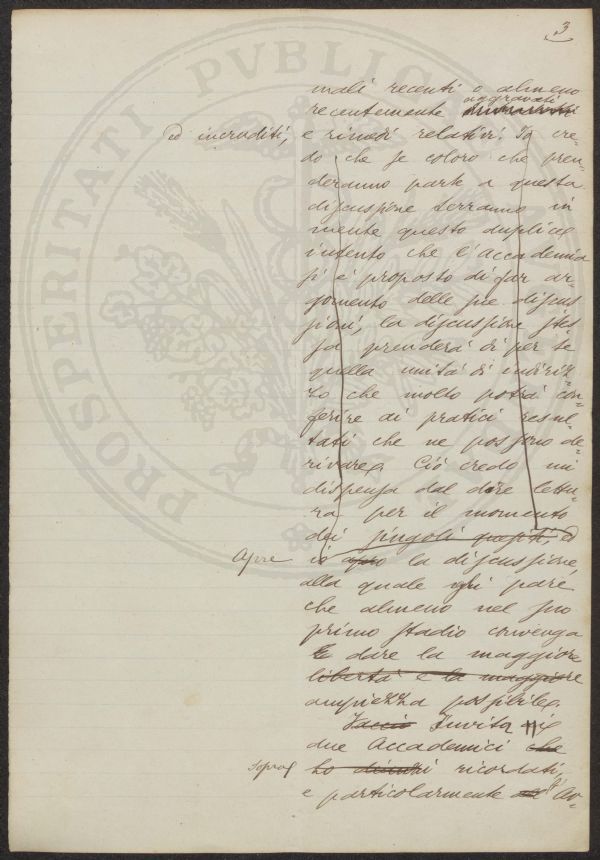 3
mali recenti o almeno
aggravati
recentemente
ed incruditi, e rimedi relativi. Io cre-
do che se coloro che pren-
deranno parte a questa
discussione terranno in
mente questo duplice
intento che l'Accademia
si è proposto di far ar-
gomento delle sue discus
sioni, la discussione stes-
sa prenderà di per se
quella unità di indiriz-
zo che molto potrà con-
ferire ai pratici resul-
tati che ne possono de-
rivare. Ciò credo mi
dispensa dal dare lettu-
ra per il momento
dei singoli quesiti ed
Apre io apro la discussione,
alla quale gli pare,
che almeno nel suo
primo stadio convenga
dare la maggiore
libertà e la maggiore
ampiezza possibile.
Faccio Invita i
due Accademici che
sopra ho ricordati,
e particolarmente Av-
PROSPERITATI PVBLICAE